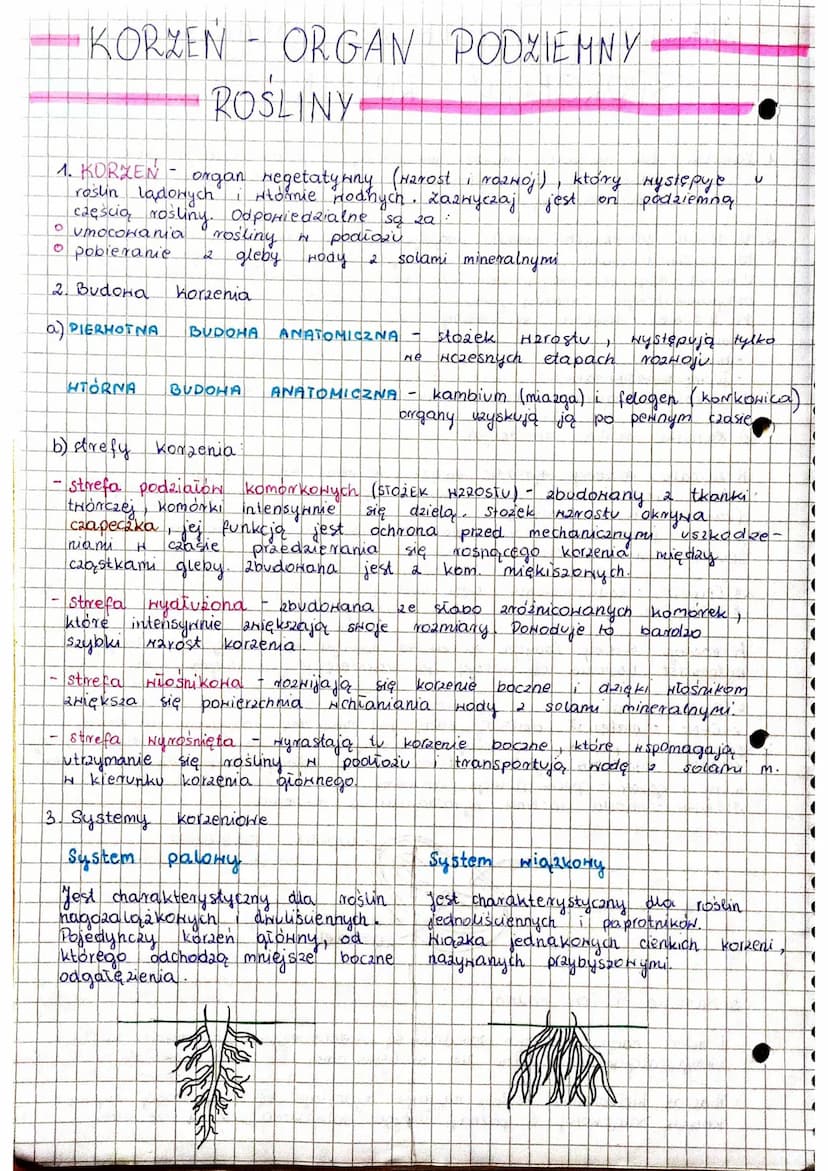 KORZEŃ - ORGAN PODZIEMNY
ROŚLINY
1. KORZEŃ - organ wegetatywny (wzrost i rozwój), który występuje u
roślin lądowych i wtórnie wodnych. Zazwyczaj jest on podziemną
częścią rośliny. Odpowiedzialne są za:
° umocowania rośliny w podłożu
° pobieranie z gleby wody z solami mineralnymi
2. Budowa korzenia
a) PIERWOTNA BUDOWA ANATOMICZNA - stożek wzrostu, występują tylko
we wczesnych etapach rozwoju
WTÓRNA BUDOWA ANATOMICZNA - kambium (miazga) i felogen (korkowica)
organy uzyskują ją po pewnym czasie
b) strefy korzenia:
- strefa podziałów komórkowych (STOŻEK WZROSTU) - zbudowany z tkanki
twórczej, komórki intensywnie się dzielą. Stożek wzrostu okrywa
czapeczka, jej funkcją jest ochrona przed mechanicznymi uszkodze-
niami w czasie przedzierania się rosnącego korzenia między
cząstkami gleby. Zbudowana jest z kom. miękiszowych.
- strefa wydłużona - zbudowana ze słabo zróżnicowanych komórek,
które intensywnie zwiększają swoje rozmiary. Powoduje to bardzo
szybki wzrost korzenia.
- strefa włośnikowa - rozwijają się korzenie boczne i dzięki włośnikom
zwiększa się powierzchnia wchłaniania wody z solami mineralnymi.
- strefa wyrośnięta - wyrastają tu korzenie boczne, które wspomagają
utrzymanie się rośliny w podłożu i transportują wodę z solami m.
w kierunku korzenia głównego.
3. Systemy korzeniowe
System palowy
Jest charakterystyczny dla roślin
nagozalążkowych i dwuliściennych.
Pojedynczy korzeń główny, od
którego odchodzą mniejsze boczne
odgałęzienia.
System wiązkowy
Jest charakterystyczny dla roślin
jednoliściennych i paprotników.
Wiązka jednakowych cienkich korzeni,
nazywanych przybyszowymi.